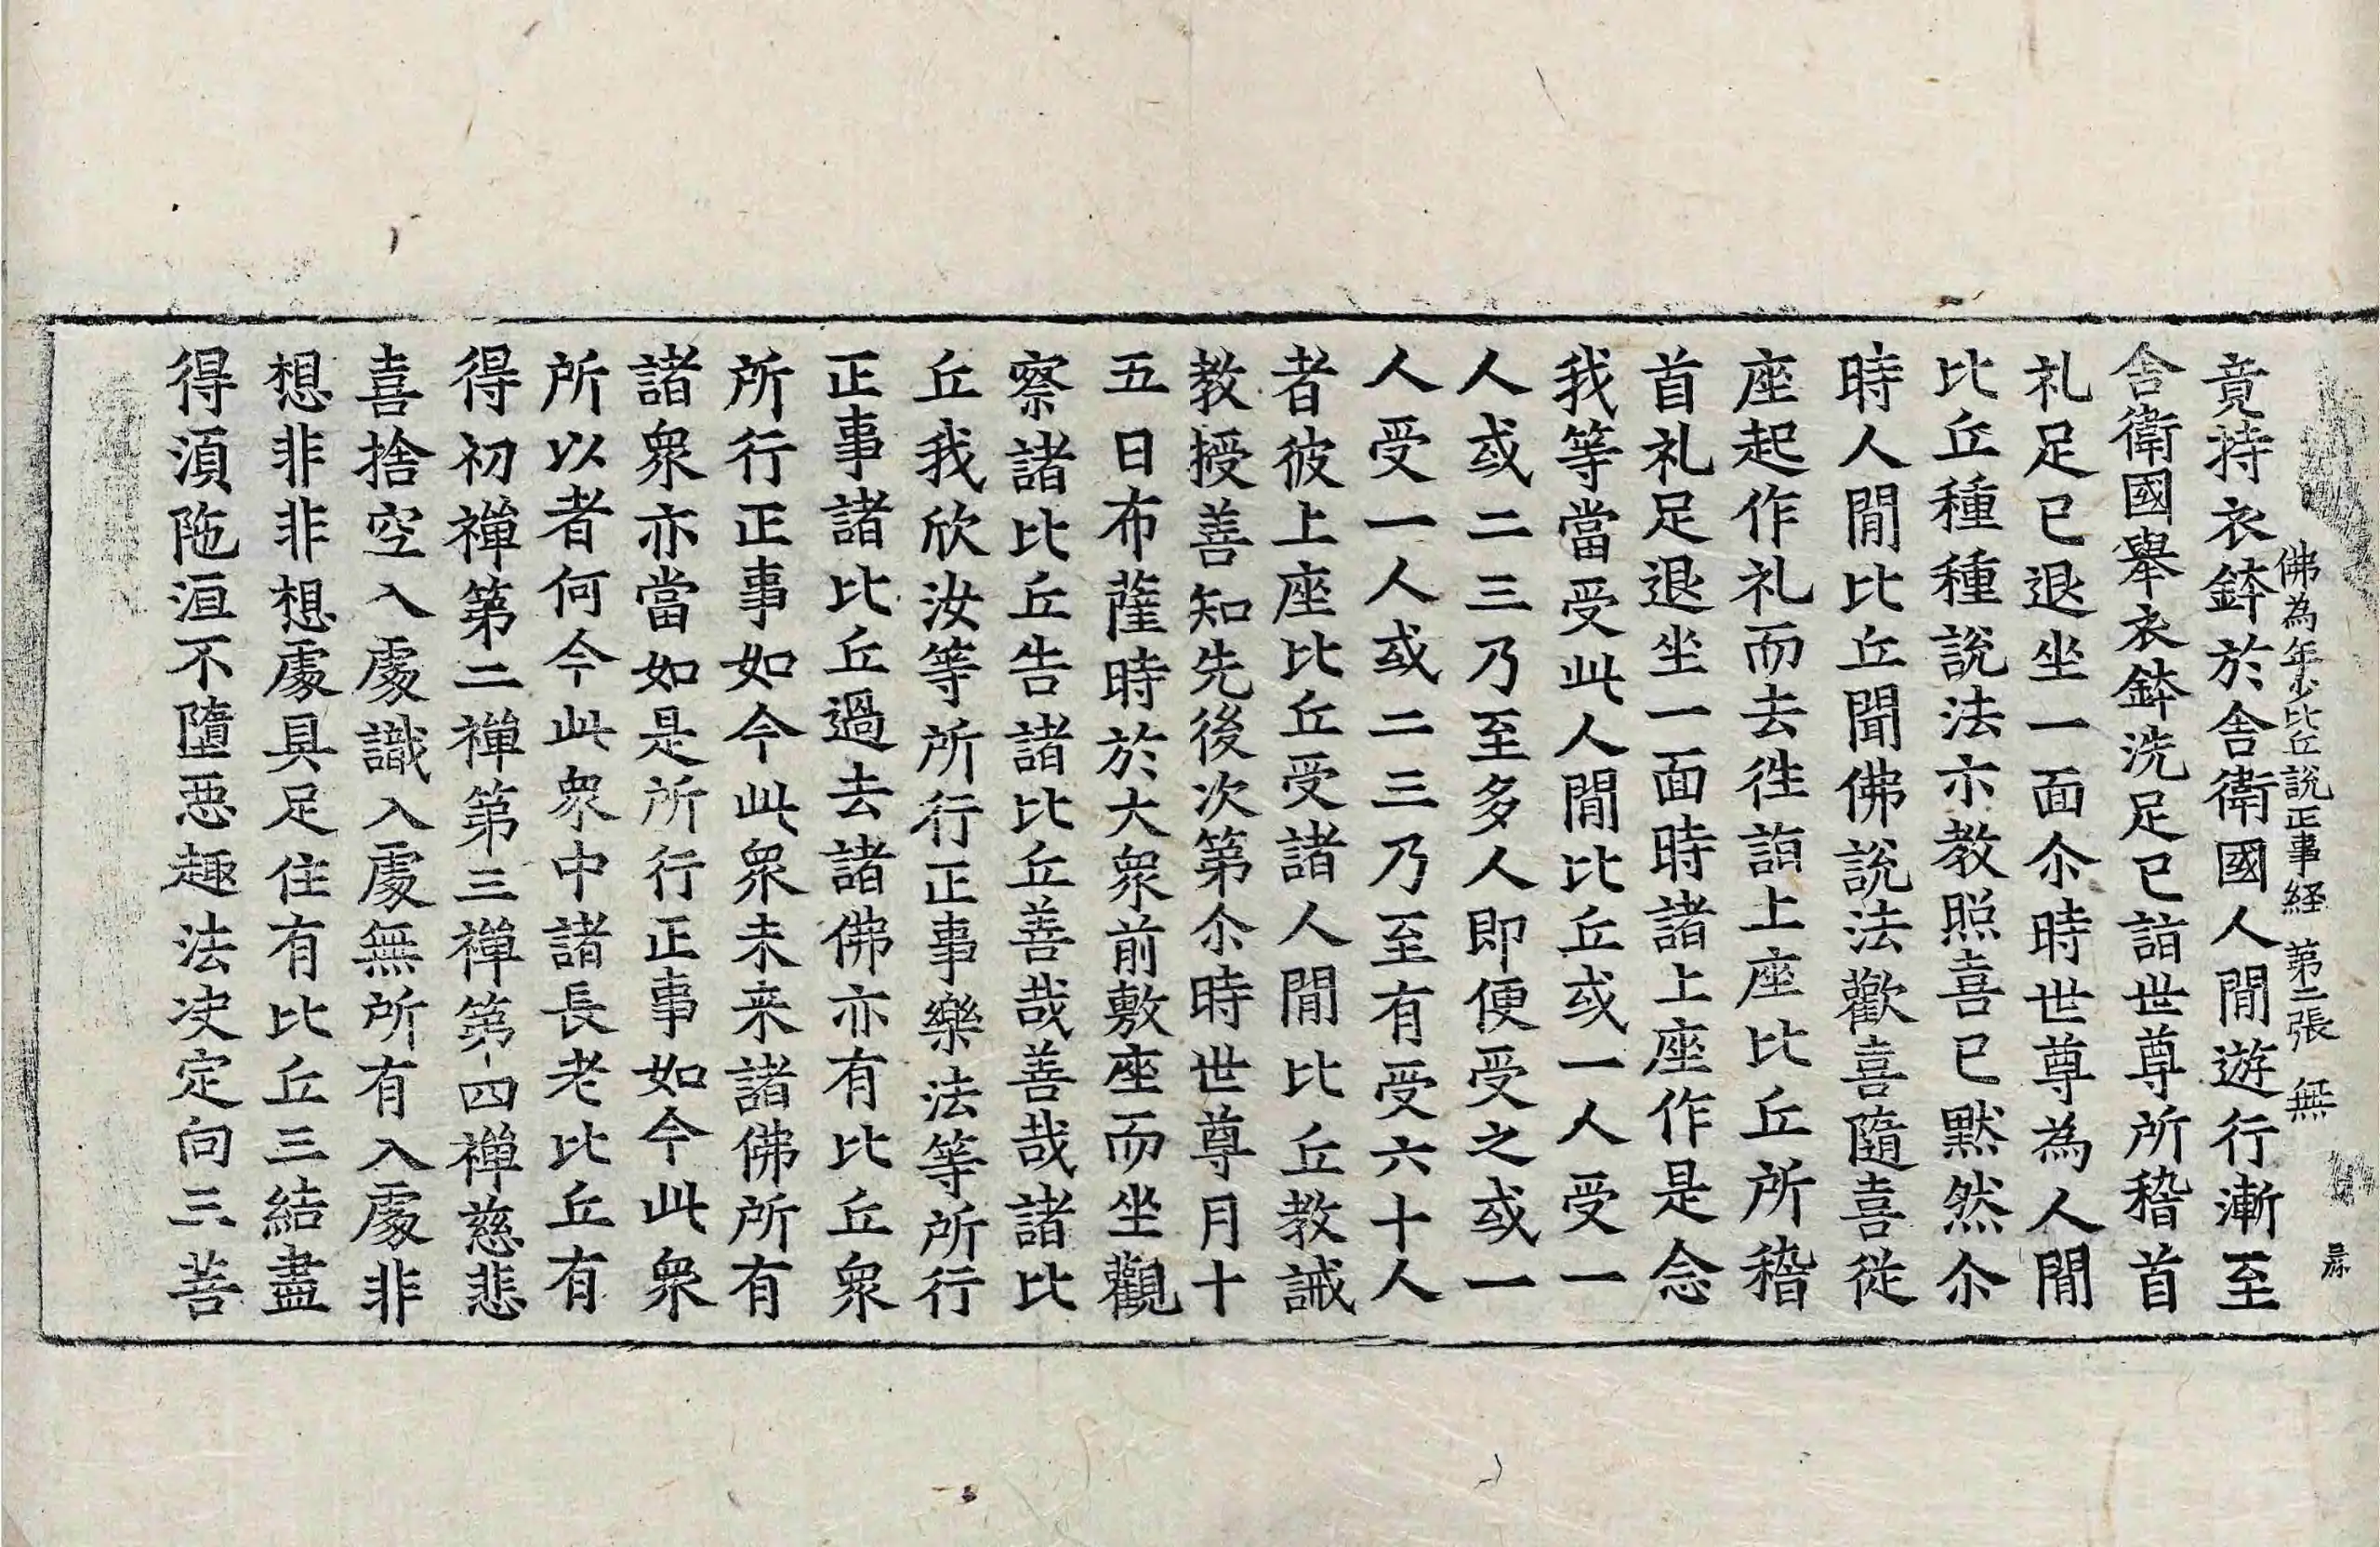 佛為年少比丘說正事経 第二張 無
竟持衣鉢於舍衛國人閒遊行漸至
舍衛國舉衣鉢洗足已詣世尊所稽首
礼足已退坐一面尒時世尊為人閒
比丘種種說法示教照喜已默然尒
時人閒比丘聞佛說法歡喜隨喜従
座起作礼而去徃詣上座比丘所稽
首礼足退坐一面時諸上座作是念
我等當受此人閒比丘或一人受一
人或二三乃至多人即便受之或一
人受一人或二三乃至有受六十人
者彼上座比丘受諸人閒比丘教誡
教授善知先後次第尒時世尊月十
五日布薩時於大衆前敷座而坐觀
察諸比丘告諸比丘善哉善哉諸比
丘我欣汝等所行正事樂法等所行
正事諸比丘過去諸佛亦有比丘衆
所行正事如今此衆未来諸佛所有
諸衆亦當如是所行正事如今此衆
所以者何今此衆中諸長老比丘有
得初禅第二禅第三禅第四禅慈悲
喜捨空入處識入處無所有入處非
想非非想處具足住有比丘三結盡
得湏陁洹不墮惡趣法决定向三菩